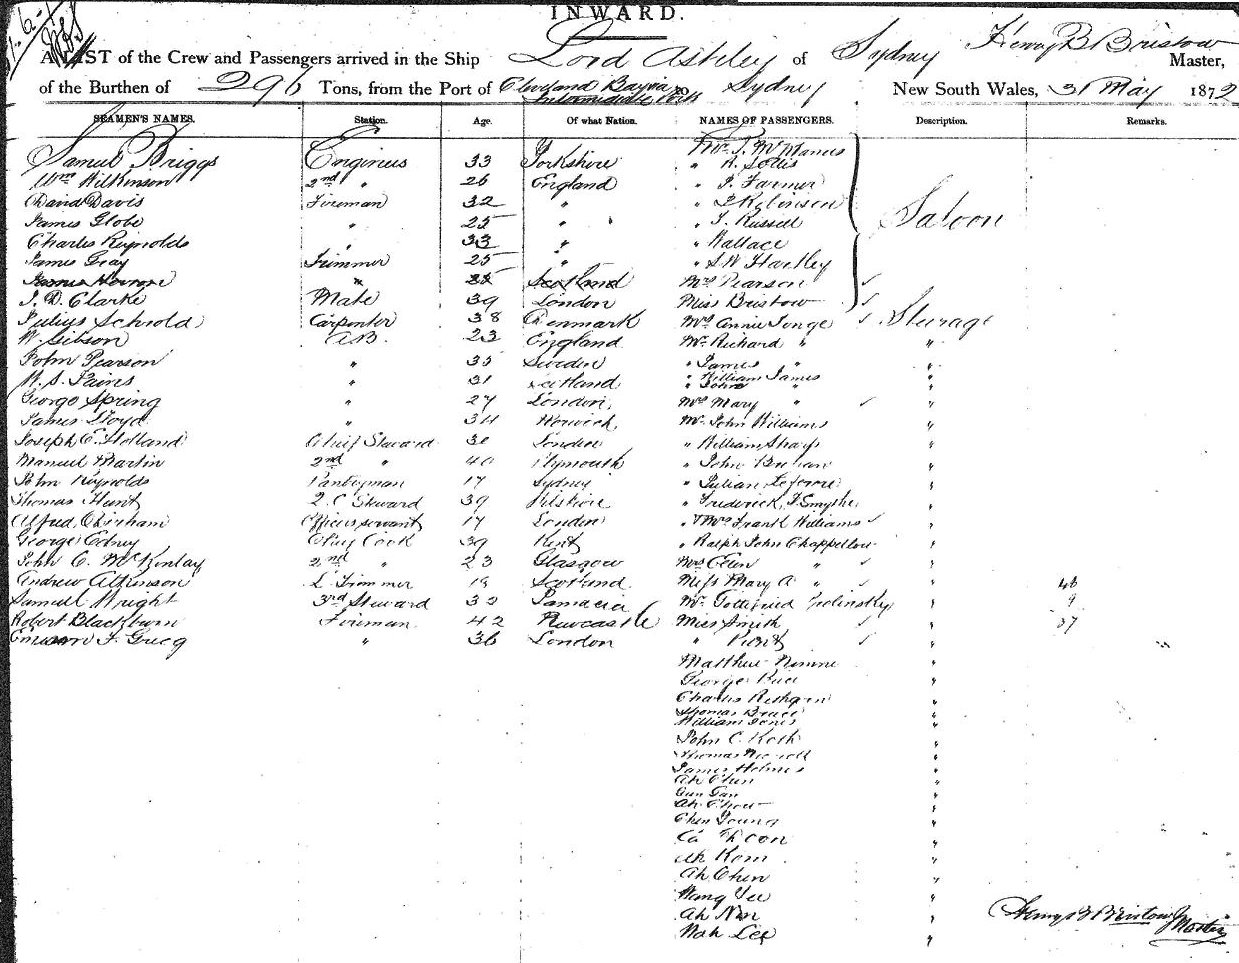 INWARD.
A LIST of the Crew and Passengers arrived in the Ship Lord Ashley of Sydney Henry B Bristow Master,
of the Burthen of 296 Tons, from the Port of Cleveland Bay via Intermediate Ports to Sydney New South Wales, 31 May 1872
SEAMEN'S NAMES. Station. Age. Of what Nation. NAMES OF PASSENGERS. Description. Remarks.
Samuel Briggs Engineer 33 Yorkshire Mr. T. McManus
Wm Wilkinson 2nd " 26 England " R. Lottis
David Davis Fireman 32 " " J. Farmer
James Globe " 25 " " Robinson Saloon
Charles Reynolds " 33 " " T. Russell
James Gray Trimmer 25 " " Wallace
" S. W. Hartley
James " 25 Scotland Mrs Pearson
J. D. Clarke Mate 39 London Miss Bristow
Julius Schrold Carpenter 38 Denmark Mrs Annie Tonge Steerage
W. Gibson A.B. 23 England Mr. Richard " "
John Pearson " 35 Sweden " James " "
W. S. Pains " 31 " William James "
" John "
George Spring " 27 London, Mrs Mary " "
James Lloyd " 34 Norwich, Mr. John Williams "
Joseph E. Holland Chief Steward 30 London " William Sharp "
Manuel Martin 2nd " 40 Plymouth " John "
John Reynolds Pantryman 17 Sydney " Julian Lefevre "
Thomas Hunt 2. C Steward 39 " Frederick J. Smythe "
Alfred Officers servant 17 London " Frank Williams "
George Edney Chief Cook 39 Kent " Ralph John Chappellow "
John C. McKinlay 2nd " 23 Glasgow Mrs Ellen " "
Andrew Atkinson Trimmer 19 Scotland Miss Mary A " " 46
Samuel Wright 3rd Steward 32 Mr. Gottfried " 9
Robert Blackburn Fireman 42 Newcastle Miss Smith " 37
F. Greig " 36 London " "
Matthew Nimmo "
George "
Charles "
Thomas Bruce "
William Jones "
John C. Koth "
Thomas "
James Holmes "
Ah Chin "
Gun Gan "
Ah Chow "
Chin Young "
Ca Thoon "
Ah Kom "
Ah Chin "
Wang Yee "
Ah Nin "
Wah Lee "
Henry B Bristow Master